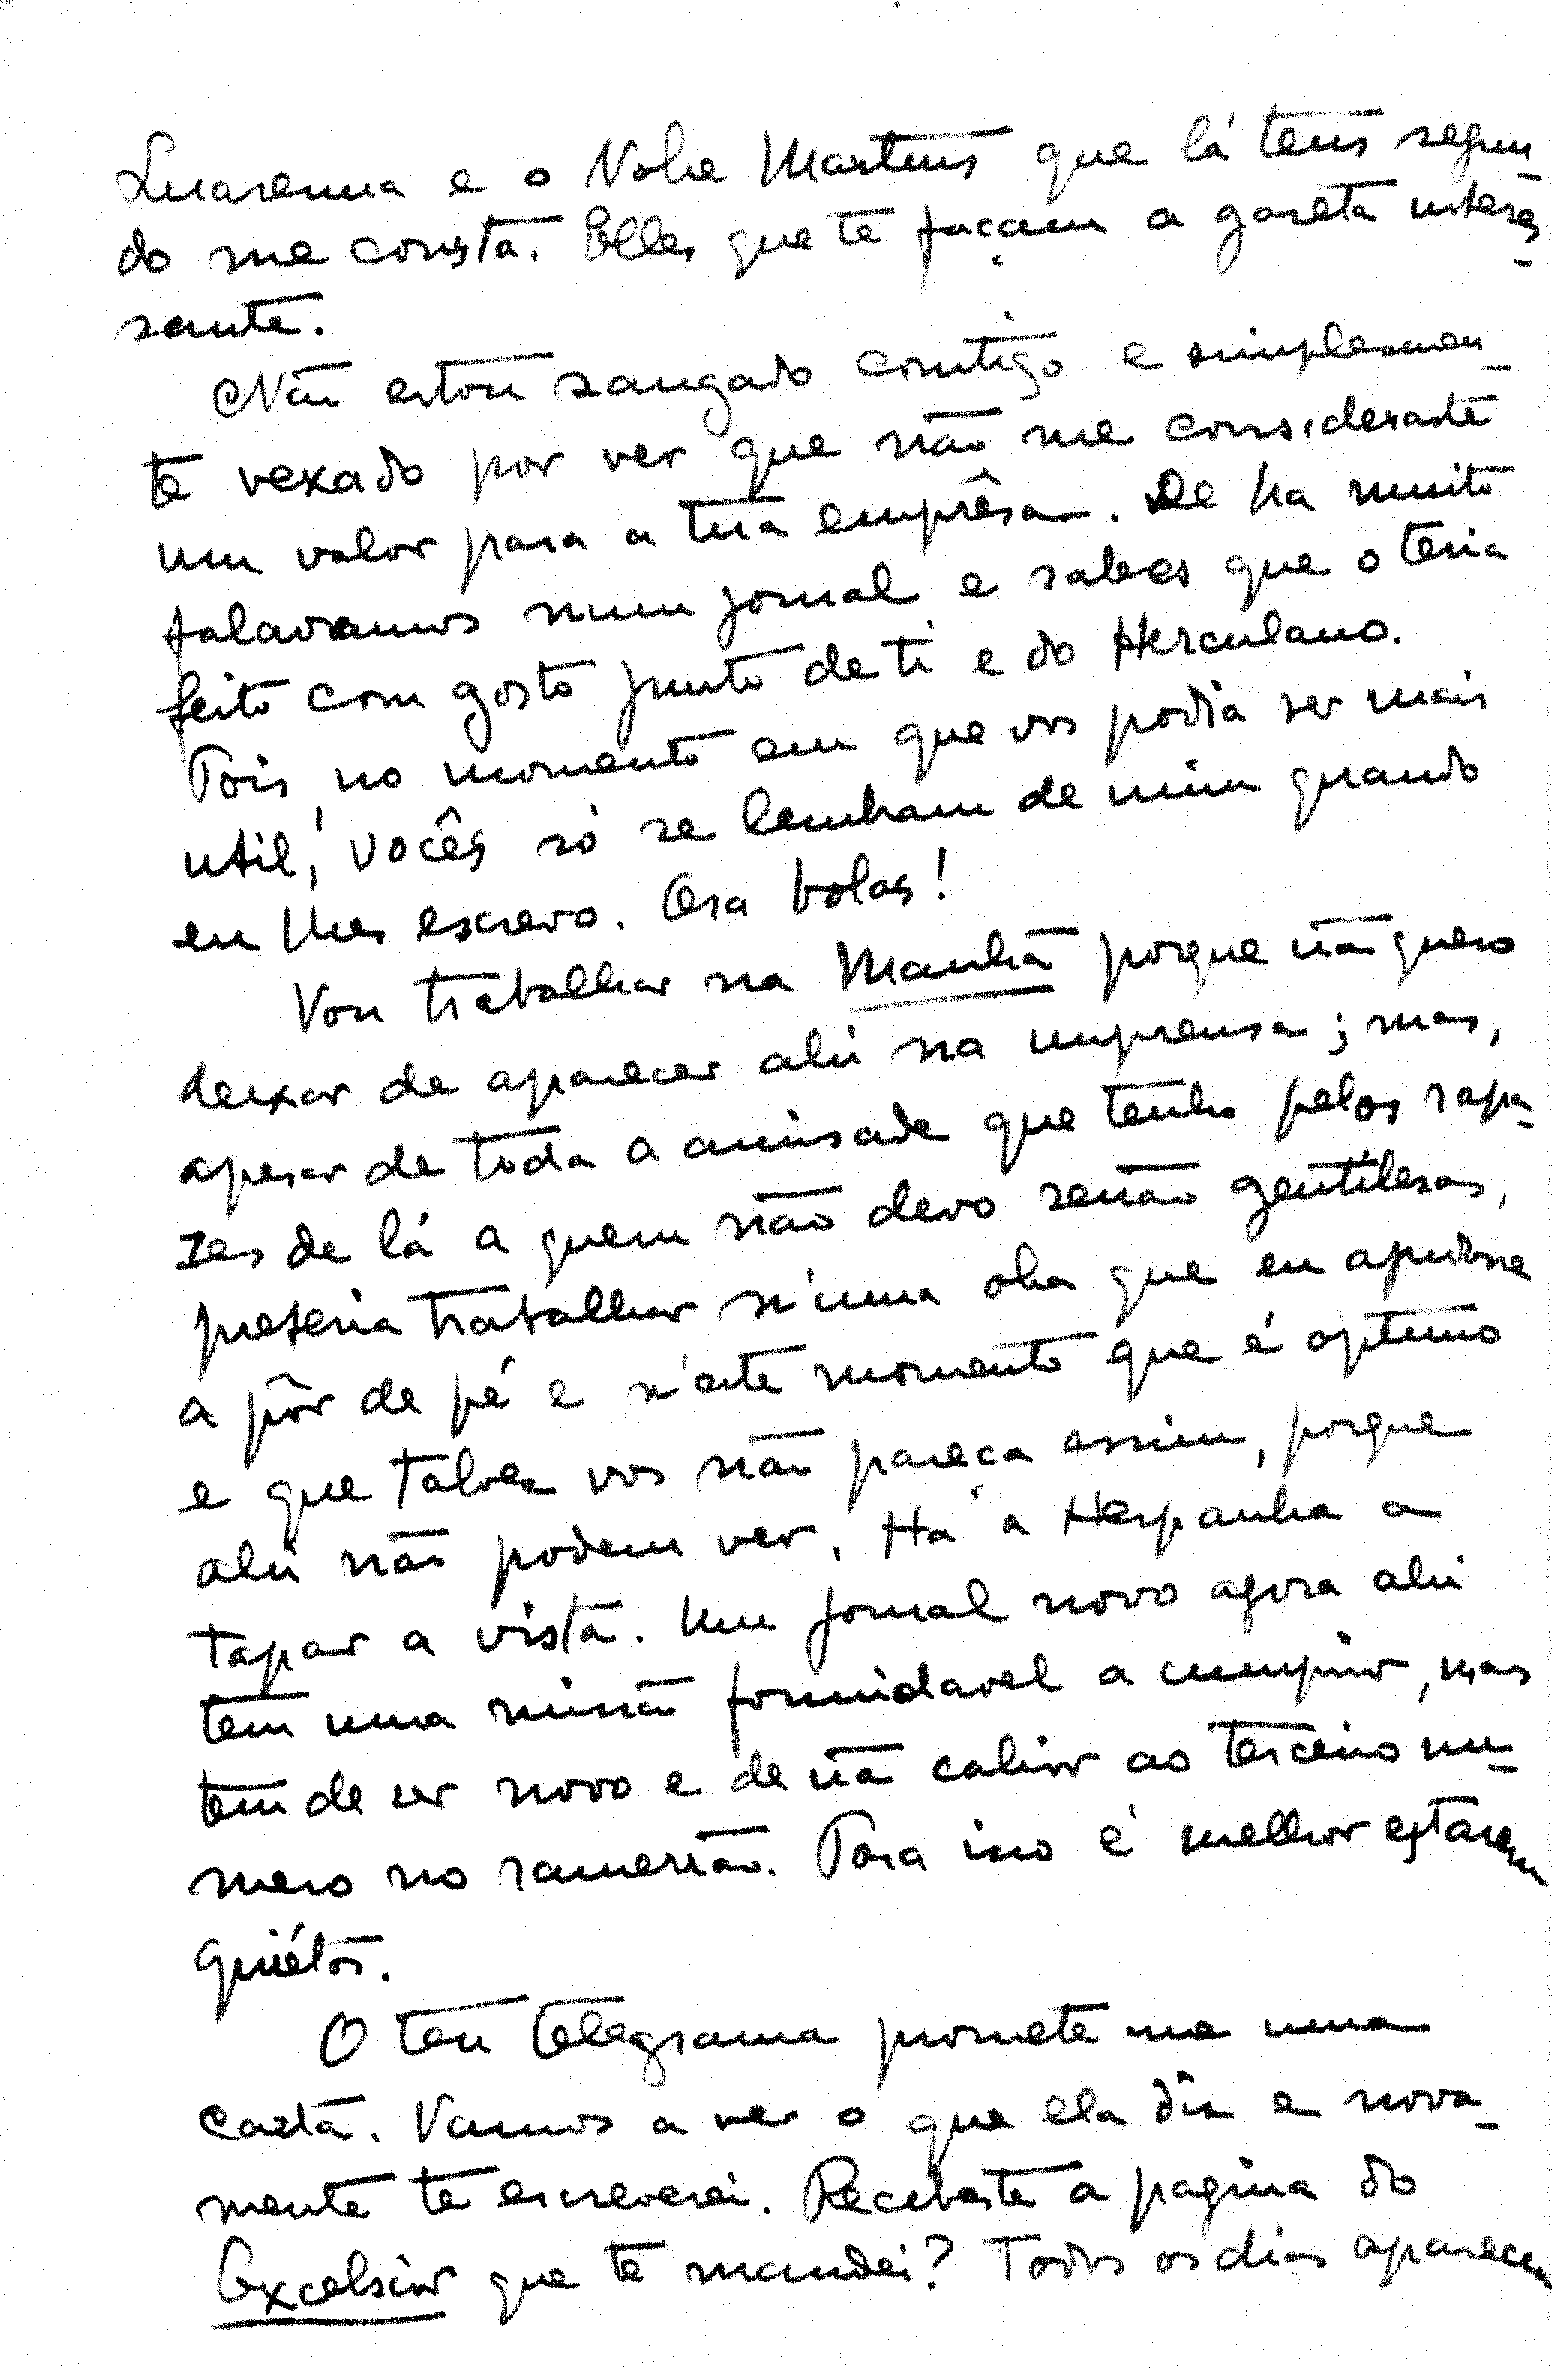 e o Nobre Martins que lá tens segun-
do me consta. Elles que te façam a gazeta interes-
sante.
Não estou zangado comtigo e simplesmen-
te vexado por ver que não me consideraste
um valor para a tua emprêsa. De ha muito
falavamos num jornal e sabes que o teria
feito com gosto junto de ti e do Herculano.
Pois, no momento em que vos podia ser mais
util, vocês só se lembram de mim quando
eu lhes escrevo. Ora bolas!
Vou trabalhar na Manhã porque não quero
deixar de aparecer ahi na imprensa; mas,
apesar de toda a amisade que tenho pelos rapa-
zes de lá a quem não devo senão gentilesas,
preferia trabalhar n'uma obra que eu ajudasse
a pôr de pé e n'este momento que é optimo
e que talvez vos não pareça assim, porque
ahi não podem ver. Ha a Hespanha a
tapar a vista. Um jornal novo agora ahi
tem uma missão formidavel a cumprir, mas
tem de ser novo e de não cahir ao terceiro nu-
mero no ramerrão. Para isso é melhor estarem
quiétos.
O teu telegrama promete me uma
carta. Vamos a ver o que ela diz e nova-
mente te escreverei. Recebeste a pagina do
Excelsior que te mandei? Todos os dias aparecem